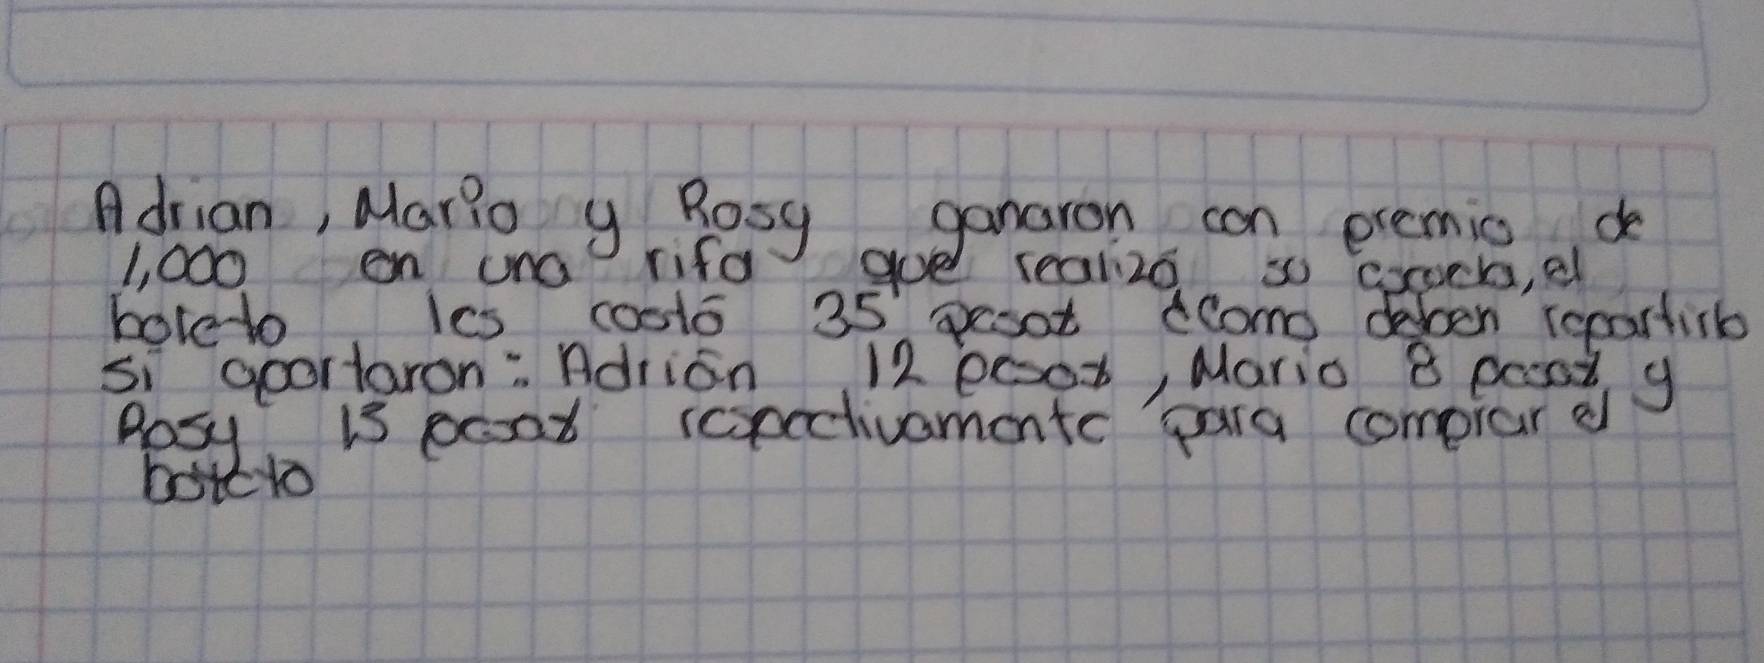 Adrian, Mario y Rosy ganaron con premio de
1,000 en una rifa que realizó su escuela, el
boleto les costó 35 pesos ¿Como deben repartirlo
si aportaron: Adrián 12 pesos, Mario 8 pesos y
Rosy 15 pesos respectivamente para comprar el
boleto